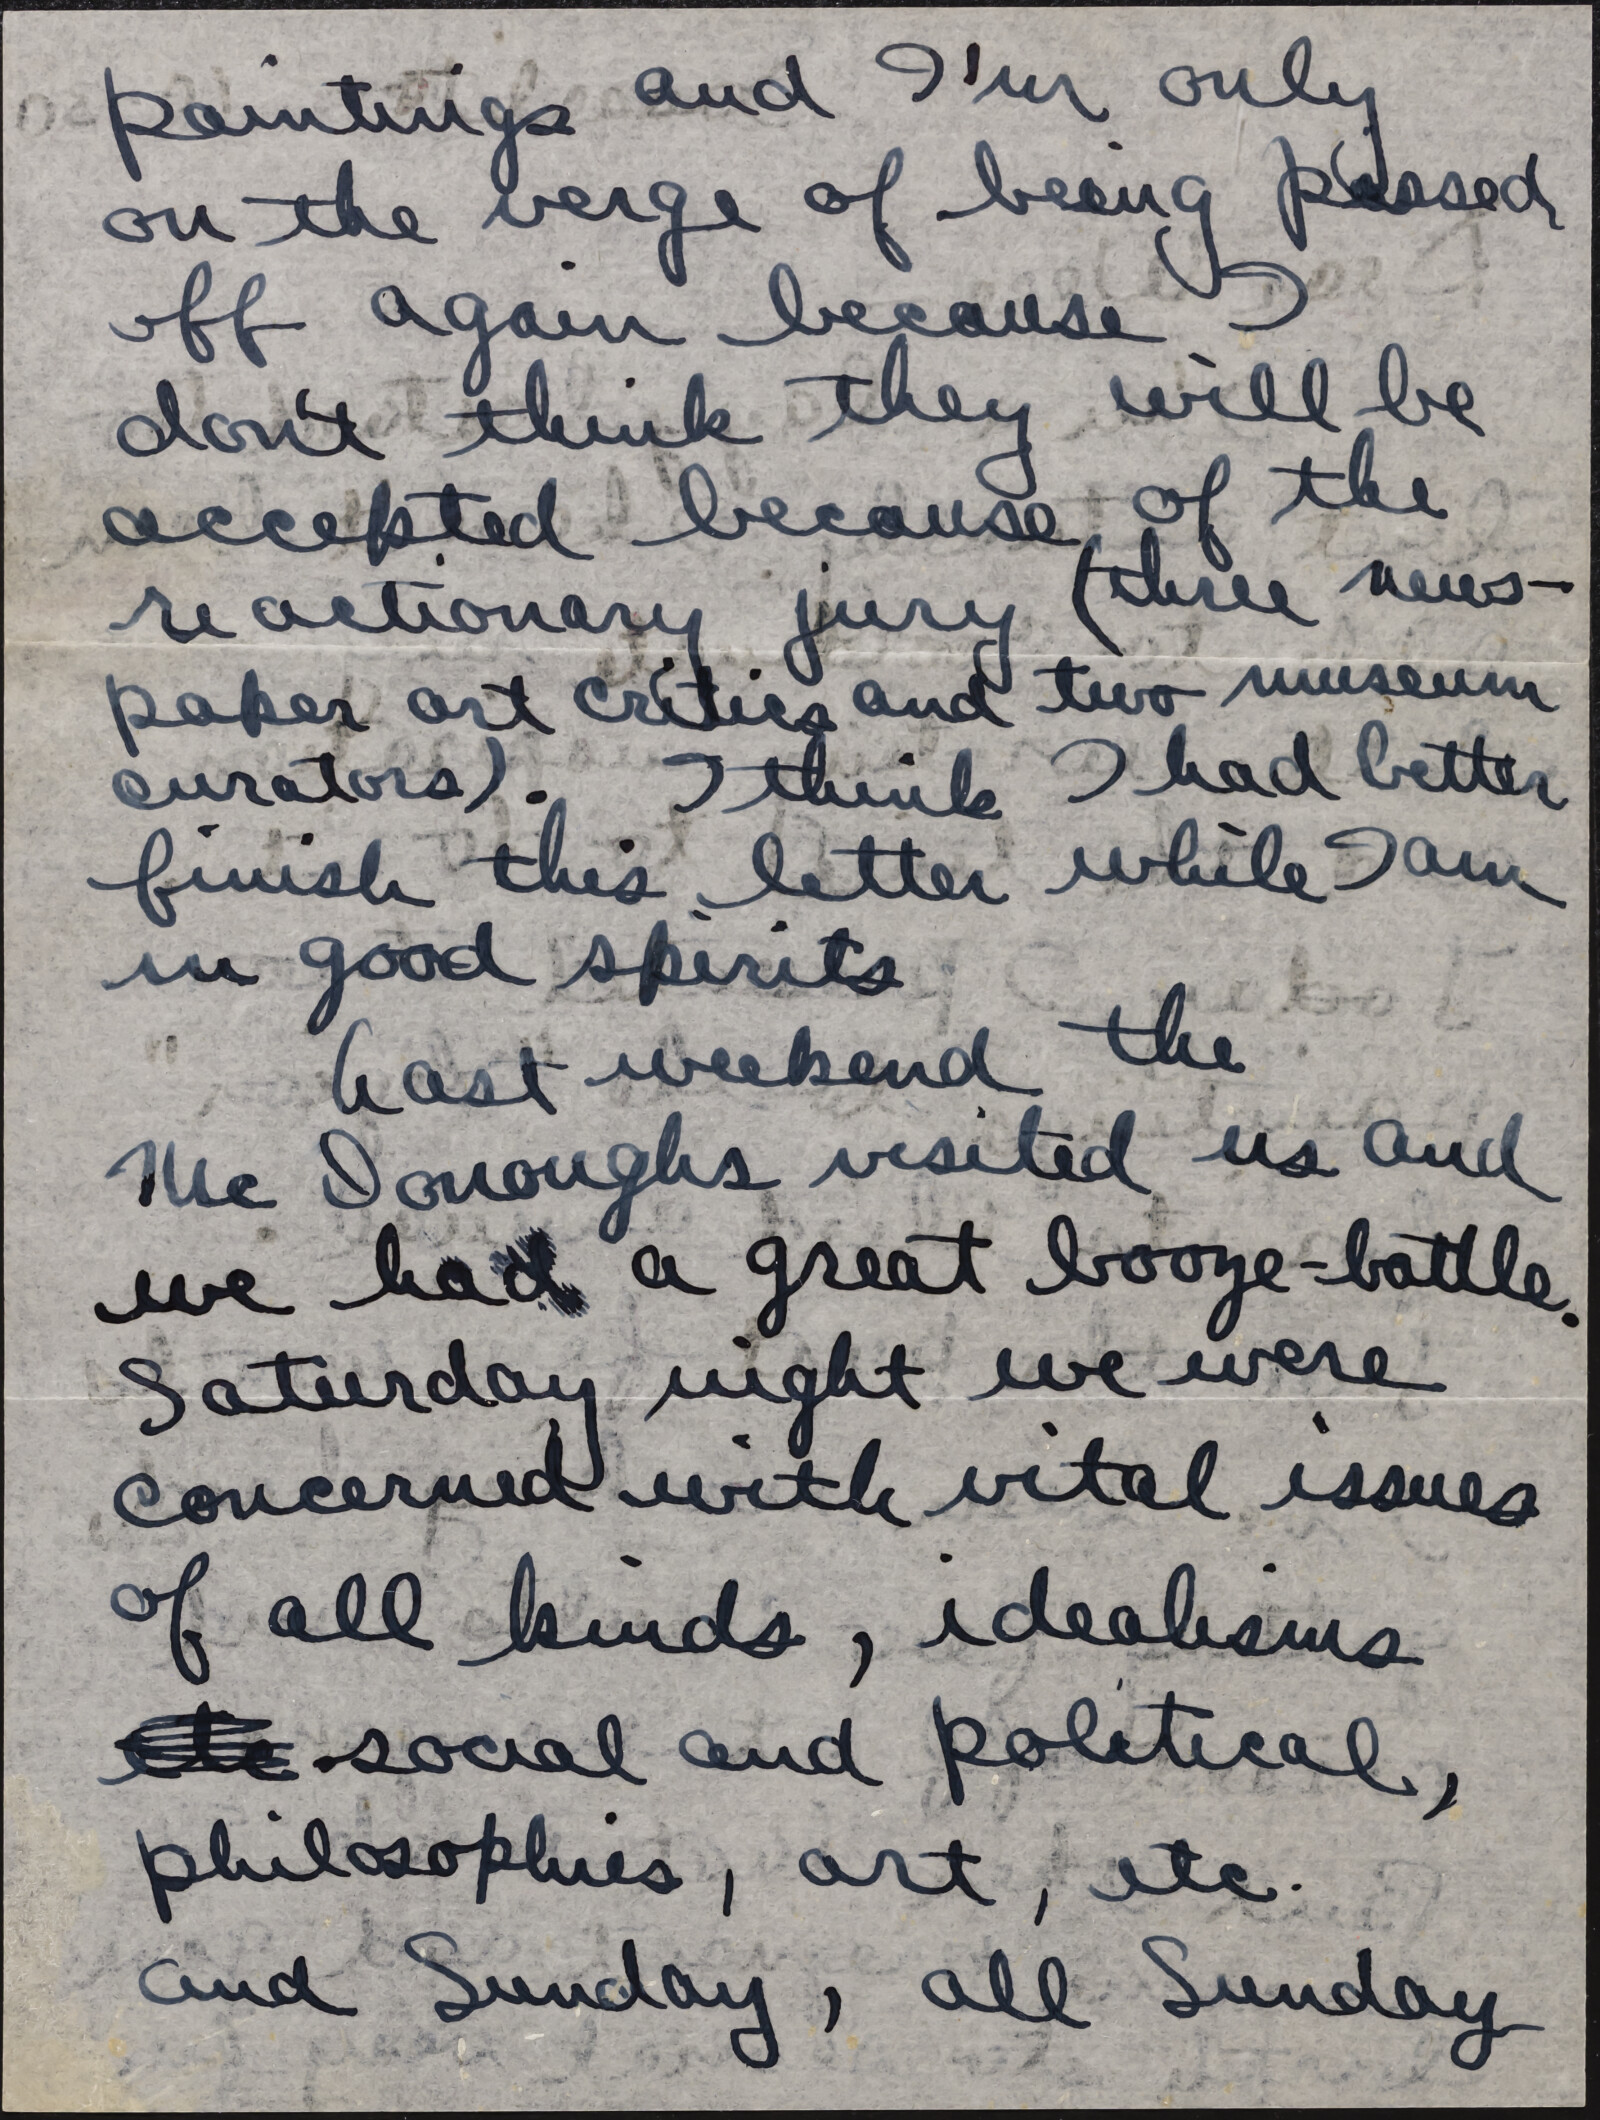 paintings and I'm only
on the verge of being pissed
off again because I
don't think they will be
accepted because of the
reactionary jury (three news-
paper art critics and two museum
curators). I think I had better
finish this letter while I am
in good spirits
Last weekend the
McDonoughs visited us and
we had a great booze-battle.
Saturday night we were
concerned with vital issues
of all kinds, idealisms
social and political,
philosophies, art, etc.
and Sunday, all Sunday